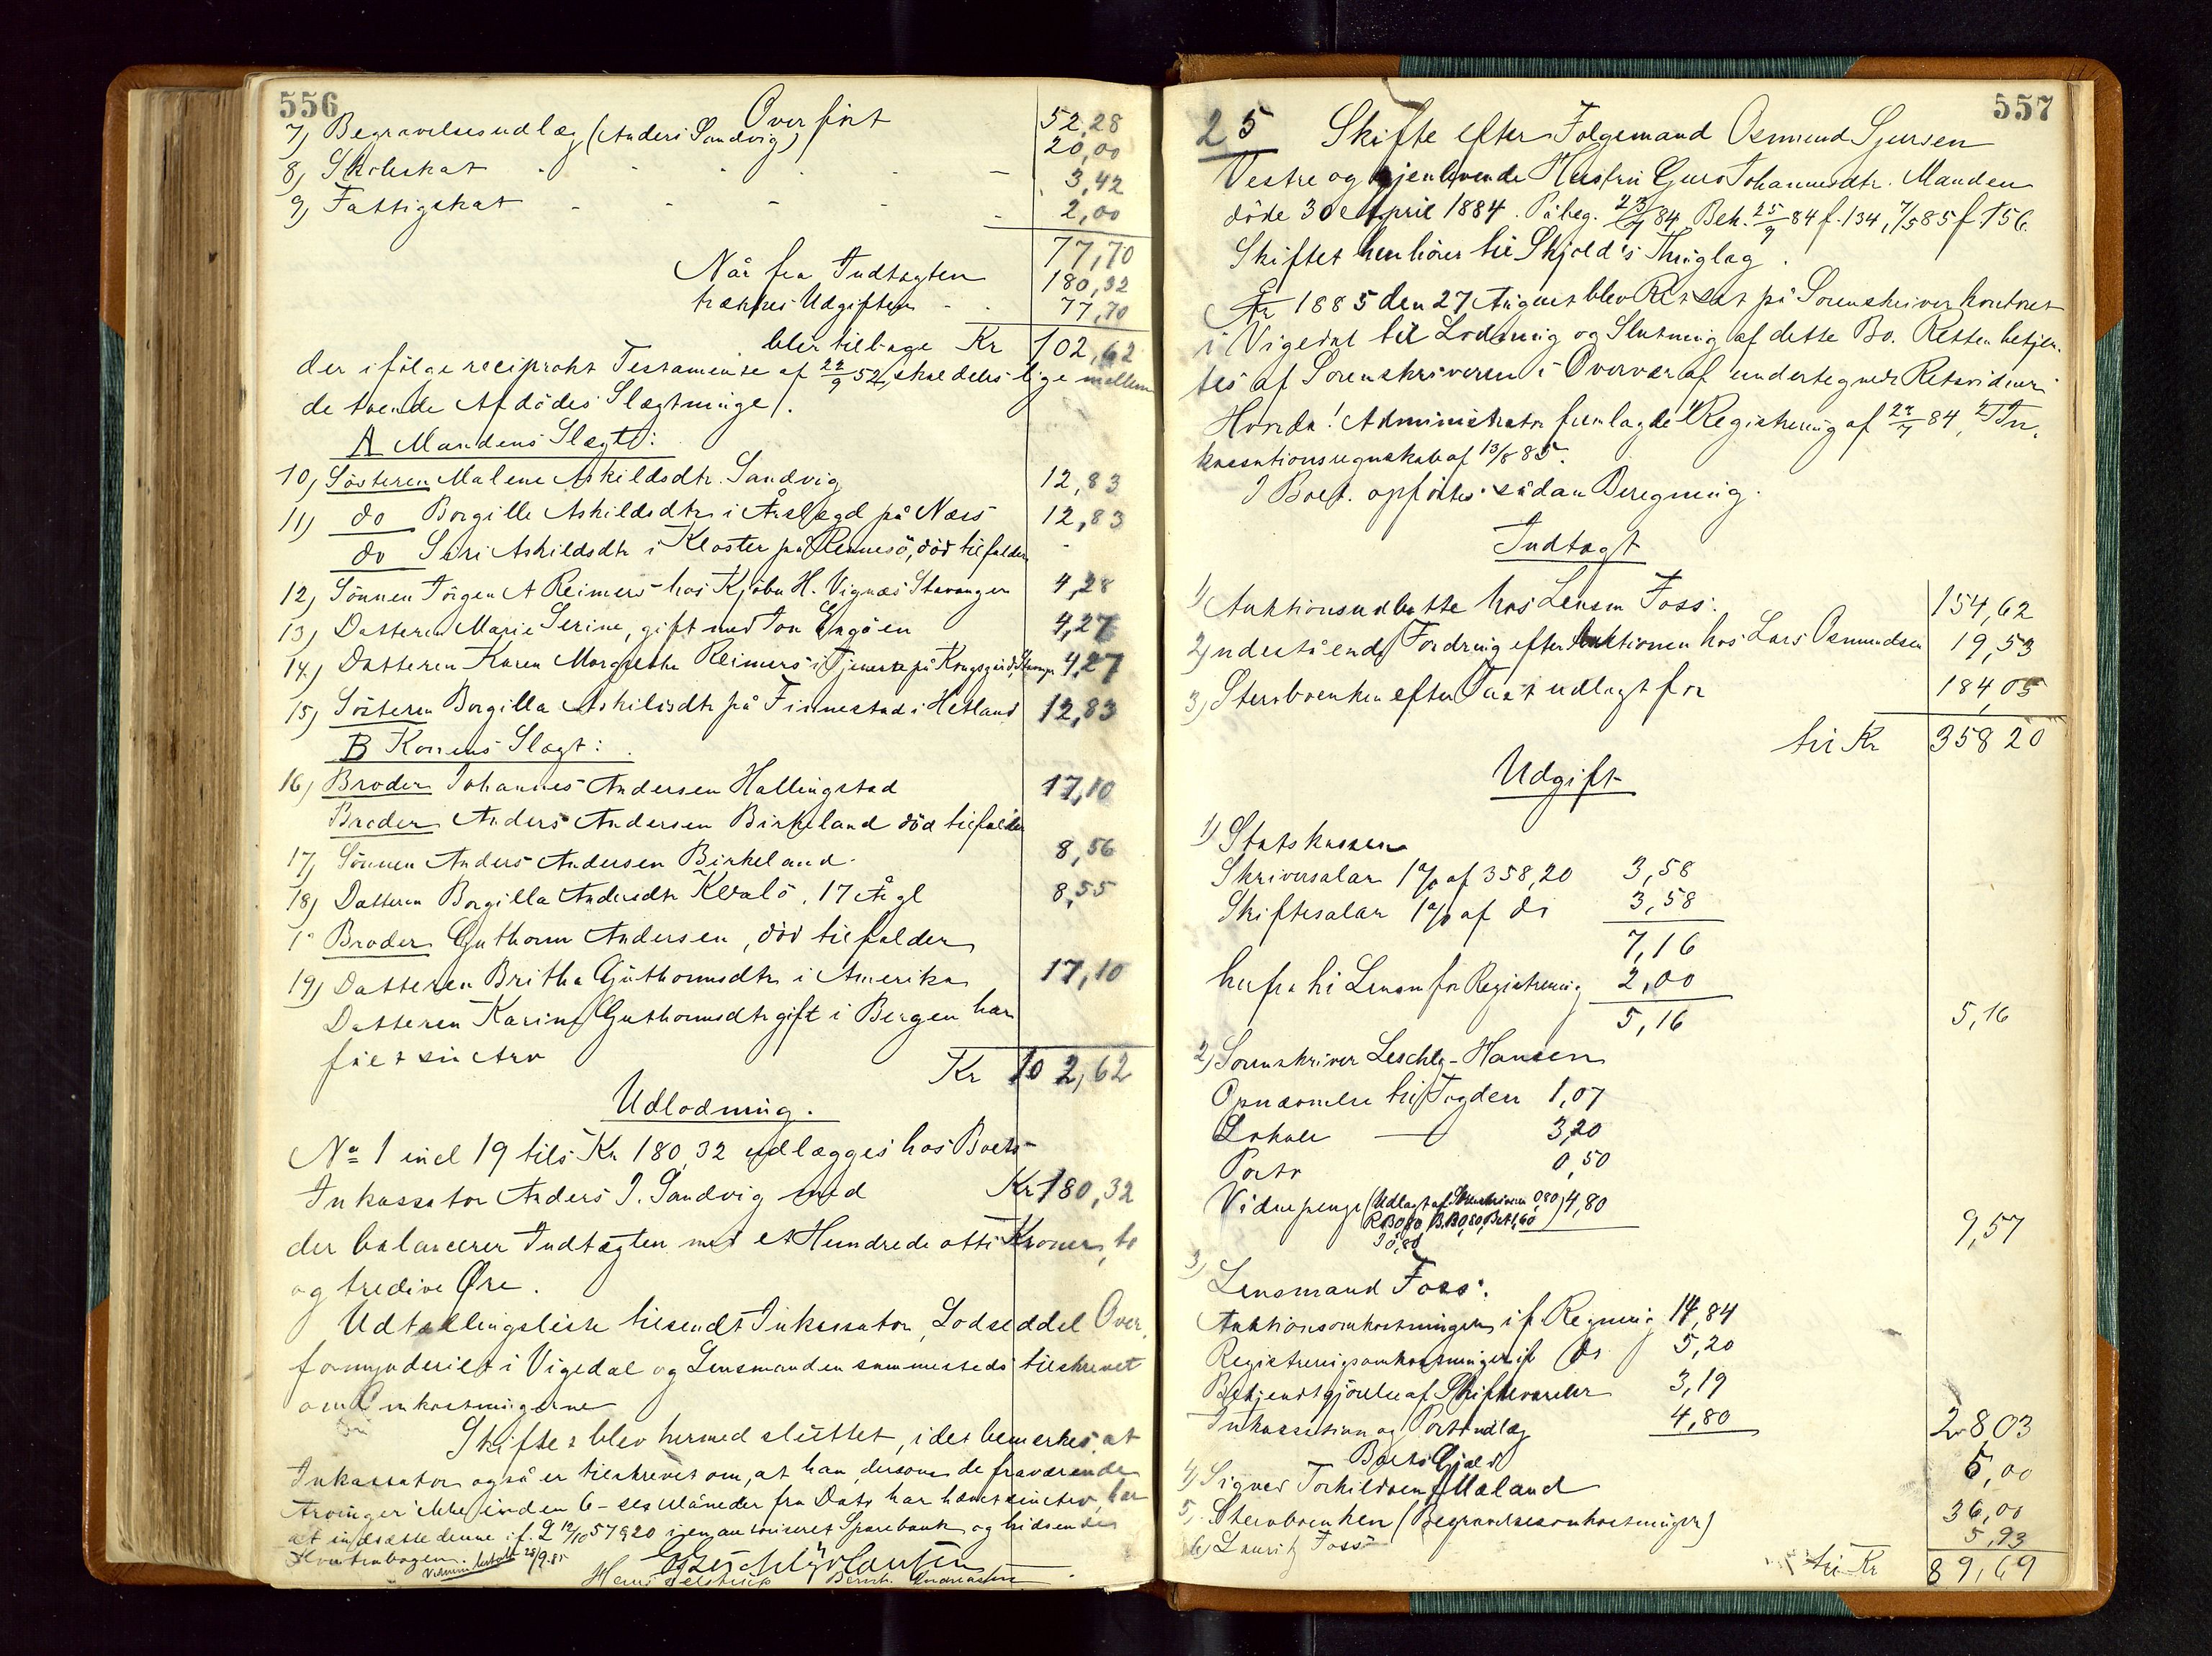 556
Overført 52,28
7) Begravelsesudlæg (Anders Sandvig) 20,00
8) Skoleskat - - - - - 3,42
9) Fattigskat - - - - - 2,00
77,70
Når fra Indtægten 180,32
trækkes Udgiften - - 77,70
blir tilbage Kr 102,62
der ifølge reciprokt Testamente af 22/9 52, skal deles lige mellem
de tvende Afdødes Slægtninge.
A Mandens Slægt:
10) Søsteren Malene Askildsdtr. Sandvig 12,83
11) do Borgille Askildsdtr i på Næss 12,83
do Siri Askildsdtr i Kloster på Rennesö, död tilfalder -
12) Sönnen Jörgen A Reimers hos Kjöbm H. Vignæs Stavanger 4,28
13) Datteren Marie Serine, gift med Jon Engöen 4,27
14) Datteren Karen Margrethe Reimers i Tjeneste på Kongsgård, Stavngr 4,27
15) Søsteren Borgilla Askildsdtr på Finnestad i Hetland 12,83
B Konens Slægt:
16) Broder Johannes Andersen Hallingstad 17,10
Broder Anders Andersen Birkeland död tilfalder
17) Sönnen Anders Andersen Birkeland 8,56
18) Datteren Borgilla Andersdtr Kvalö, 17 År gl 8,55
Broder Guthorm Andersen, död tilfalder
19) Datteren Britha Guthormsdtr i Amerika 17,10
Datteren Karine Guthormsdtr gift i Bergen har
fået sin Arv
Kr 102,62
Udlodning.
No 1 incl 19 tils Kr 180,32 udlægges hos Boets
Inkassator Anders J. Sandvig med Kr 180,32
der balancerer Indtægten med et Hundrede otti Kroner, to
og tredive Øre.
Udtællingsliste tilsendt Inkassator, Lodseddel Over-
formynderiet i Vigedal og Lensmanden sammesteds tilskrevet
om Omkostningerne
Skiftet blev hermed sluttet, idet bemerkes, at
Inkassator også er tilskrevet om, at han, dersom de fraværende
Arvinger ikke inden 6-sex Måneder fra Dato har hævet sin Arv, har
at indsætte denne if. L 12/10 57 § 20 i en autoriseret Sparebank og hidsende
Kontrabogen. 28/9.85
557
25 Skifte efter Folgemand Osmund Sjursen
Vestre og gjenlevende Hustru Guro Johannesdtr. Manden
döde 30e April 1884. Påbeg. 23/7 84, Beh. 25/9 84 f. 134, 7/5 85 f 156.
Skiftet henhörer til Skjold's Thinglag.
År 1885 den 27 August blev Ret sat på Sorenskriverkontoret
i Vigedal til Lodning og Slutning af dette Bo. Retten betjen-
tes af Sorenskriveren i Overvær af undertegnede Retsvidner
Hvorda! Administrator fremlagde 1) Registrering af 22/7 84, 2) In-
kassationsregnskab af 13/8 85.
I Boet opförtes sådan Beregning.
Indtægt
1) Auktionsudbytte hos Lensm Foss: 154,62
2) Indestående Fordring efter Auktionen hos Lars Osmundsen 19,53
3) Stervboenken efter Taxt udlagt for 184,05
til Kr 358 20
Udgift
1) Statskassen
Skriversalær 1% af 358,20 3,58
Skiftesalær 1% af do 3,58
7,16
herfra til Lensm for Registrering 2,00
5,16 5,16
2) Sorenskriver Leschly-Hansen
Opnævnelse til Fogden 1,07
Lokale — 3,20
Porto 0,50
Vidnepenge (Udlagt af Skriveren 0,80, 4,80
R B 0,80, B. B 0,80, Bet 1,60
J 0,80 9,57
3)
Lensmand Foss:
Auktionsomkostninger if Regning 14,84
Registreringsomkostninger if do 5,20
Bekjendtgjörelse af Skiftevarsler 3,19
Inkassation og Portoudlæg 4,80 28 03
Boets Gjæld
4) Signer Torkildsen Mæland 5,00
5) Stervboenken (Begravelsesomkostninger) 36,00
6) Lauritz Foss 5,93
til Kr 89,69